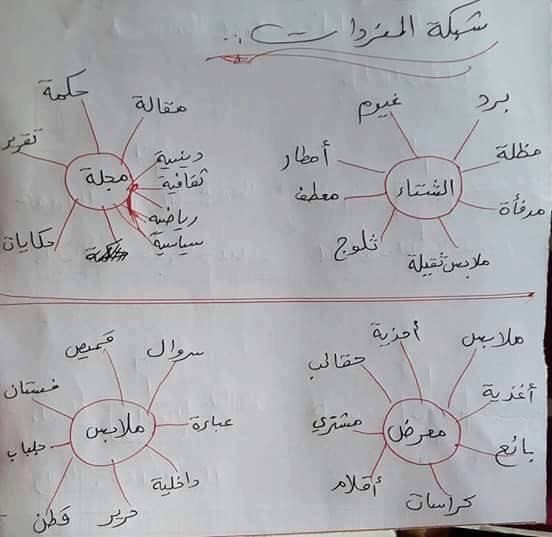 شبكة المفردات..
الشتاء
برد
مظلة
مدفأة
ملابس ثقيلة
ثلوج
معطف
أمطار
غيوم
مجلة
مقالة
دينية
ثقافية
رياضية
سياسية
حكايات
تقرير
حكمة
معرض
ملابس
أغذية
بائع
كراسات
أقلام
مشتري
حقائب
أحذية
ملابس
سروال
عباءة
داخلية
حرير
قطن
جلباب
فستان
قميص